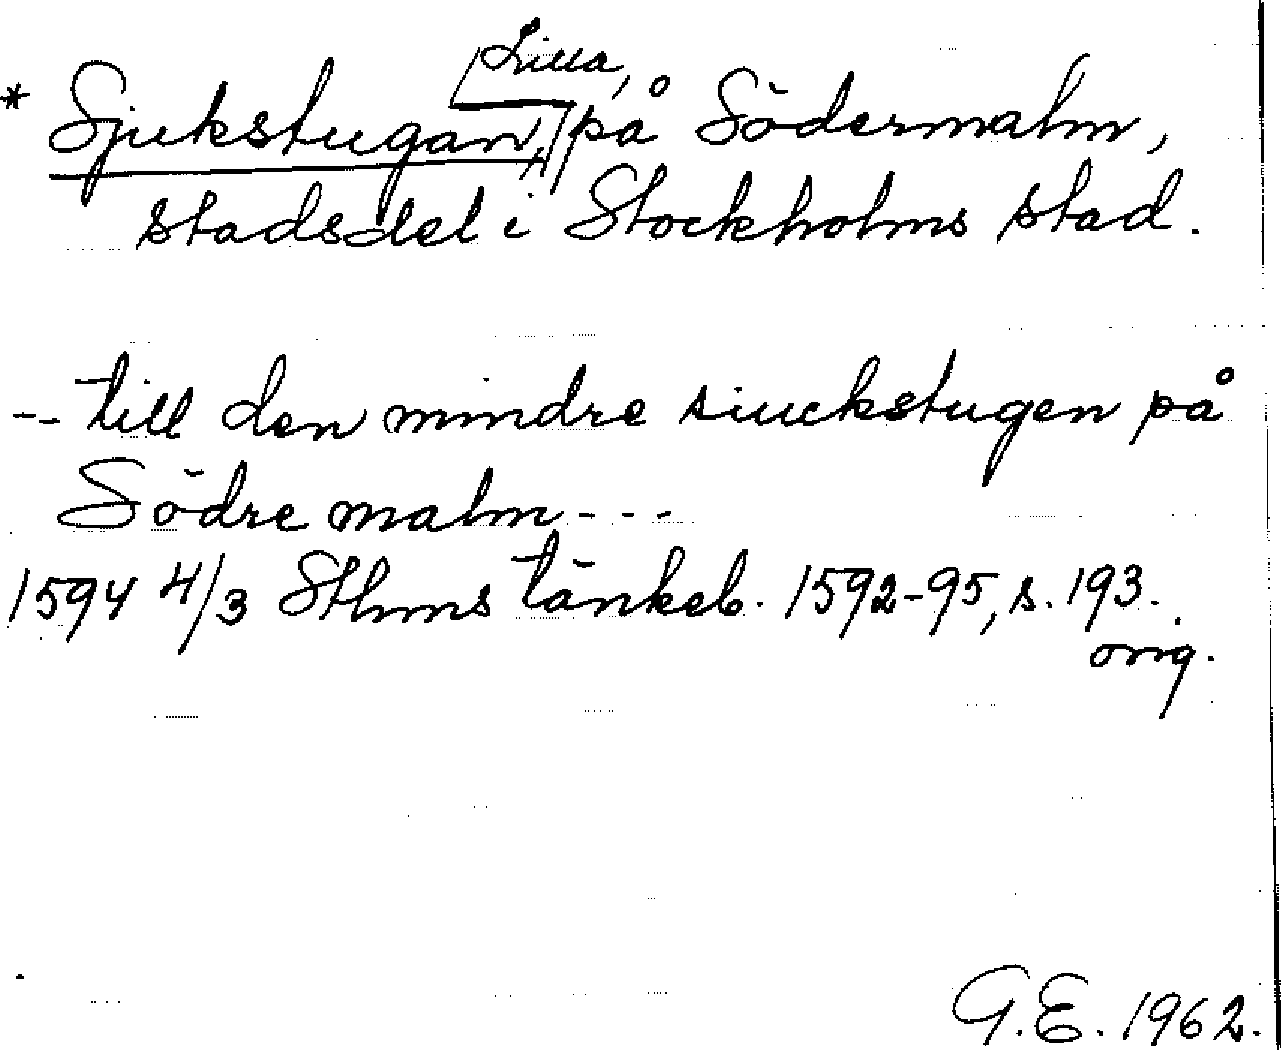 Lilla,
* Sjukstugan, på Södermalm,
stadsdel i Stockholms stad.
-- till den mindre siuckstugen på
Södre malm - - -
1594 4/3 Sthms tänkeb. 1592-95, s. 193.
orig.
G.E. 1962.